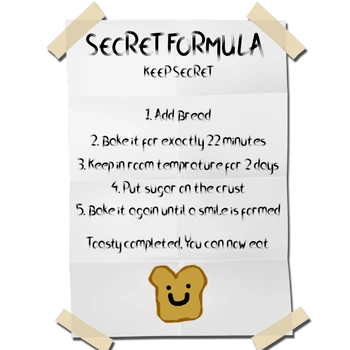 SECRET FORMULA
KEEP SECRET
1. Add Bread
2. Bake it for exactly 22 minutes
3. Keep in room temprature for 2 days
4. Put sugar on the crust
5. Bake it again until a smile is formed
Toasty completed, You can now eat